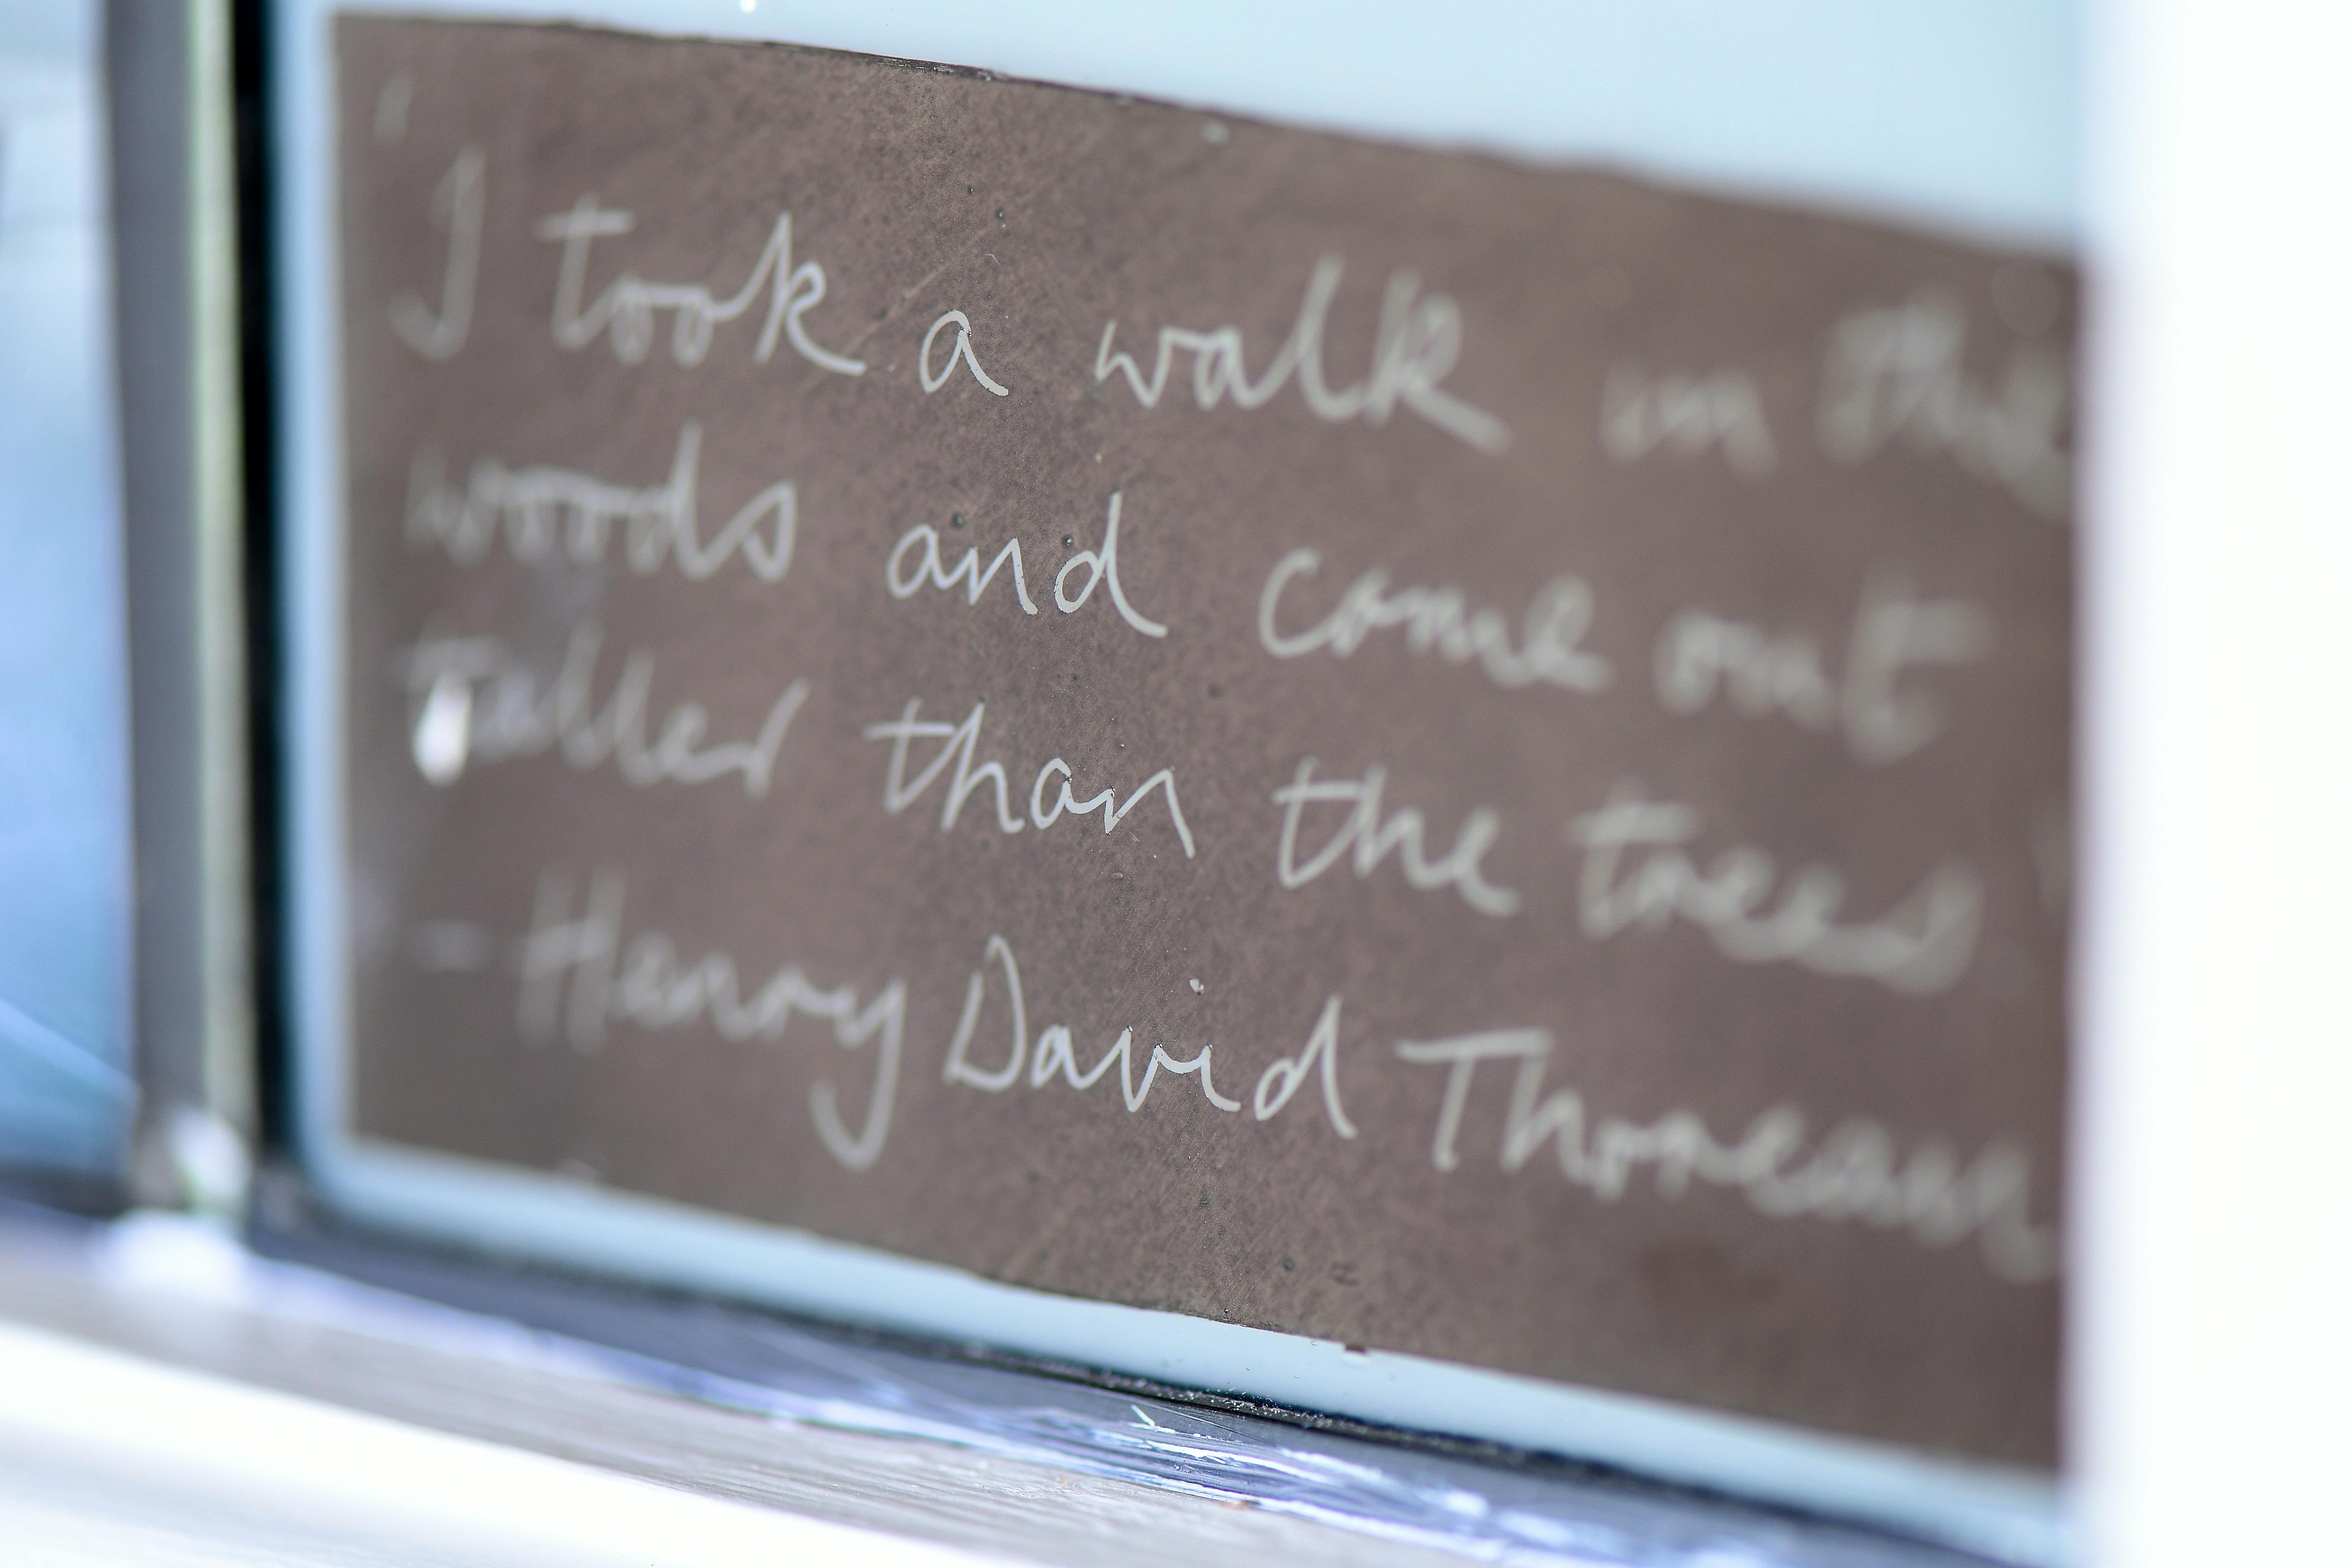 'I took a walk in the
woods and come out
Taller than the trees'
- Henry David Thoreau